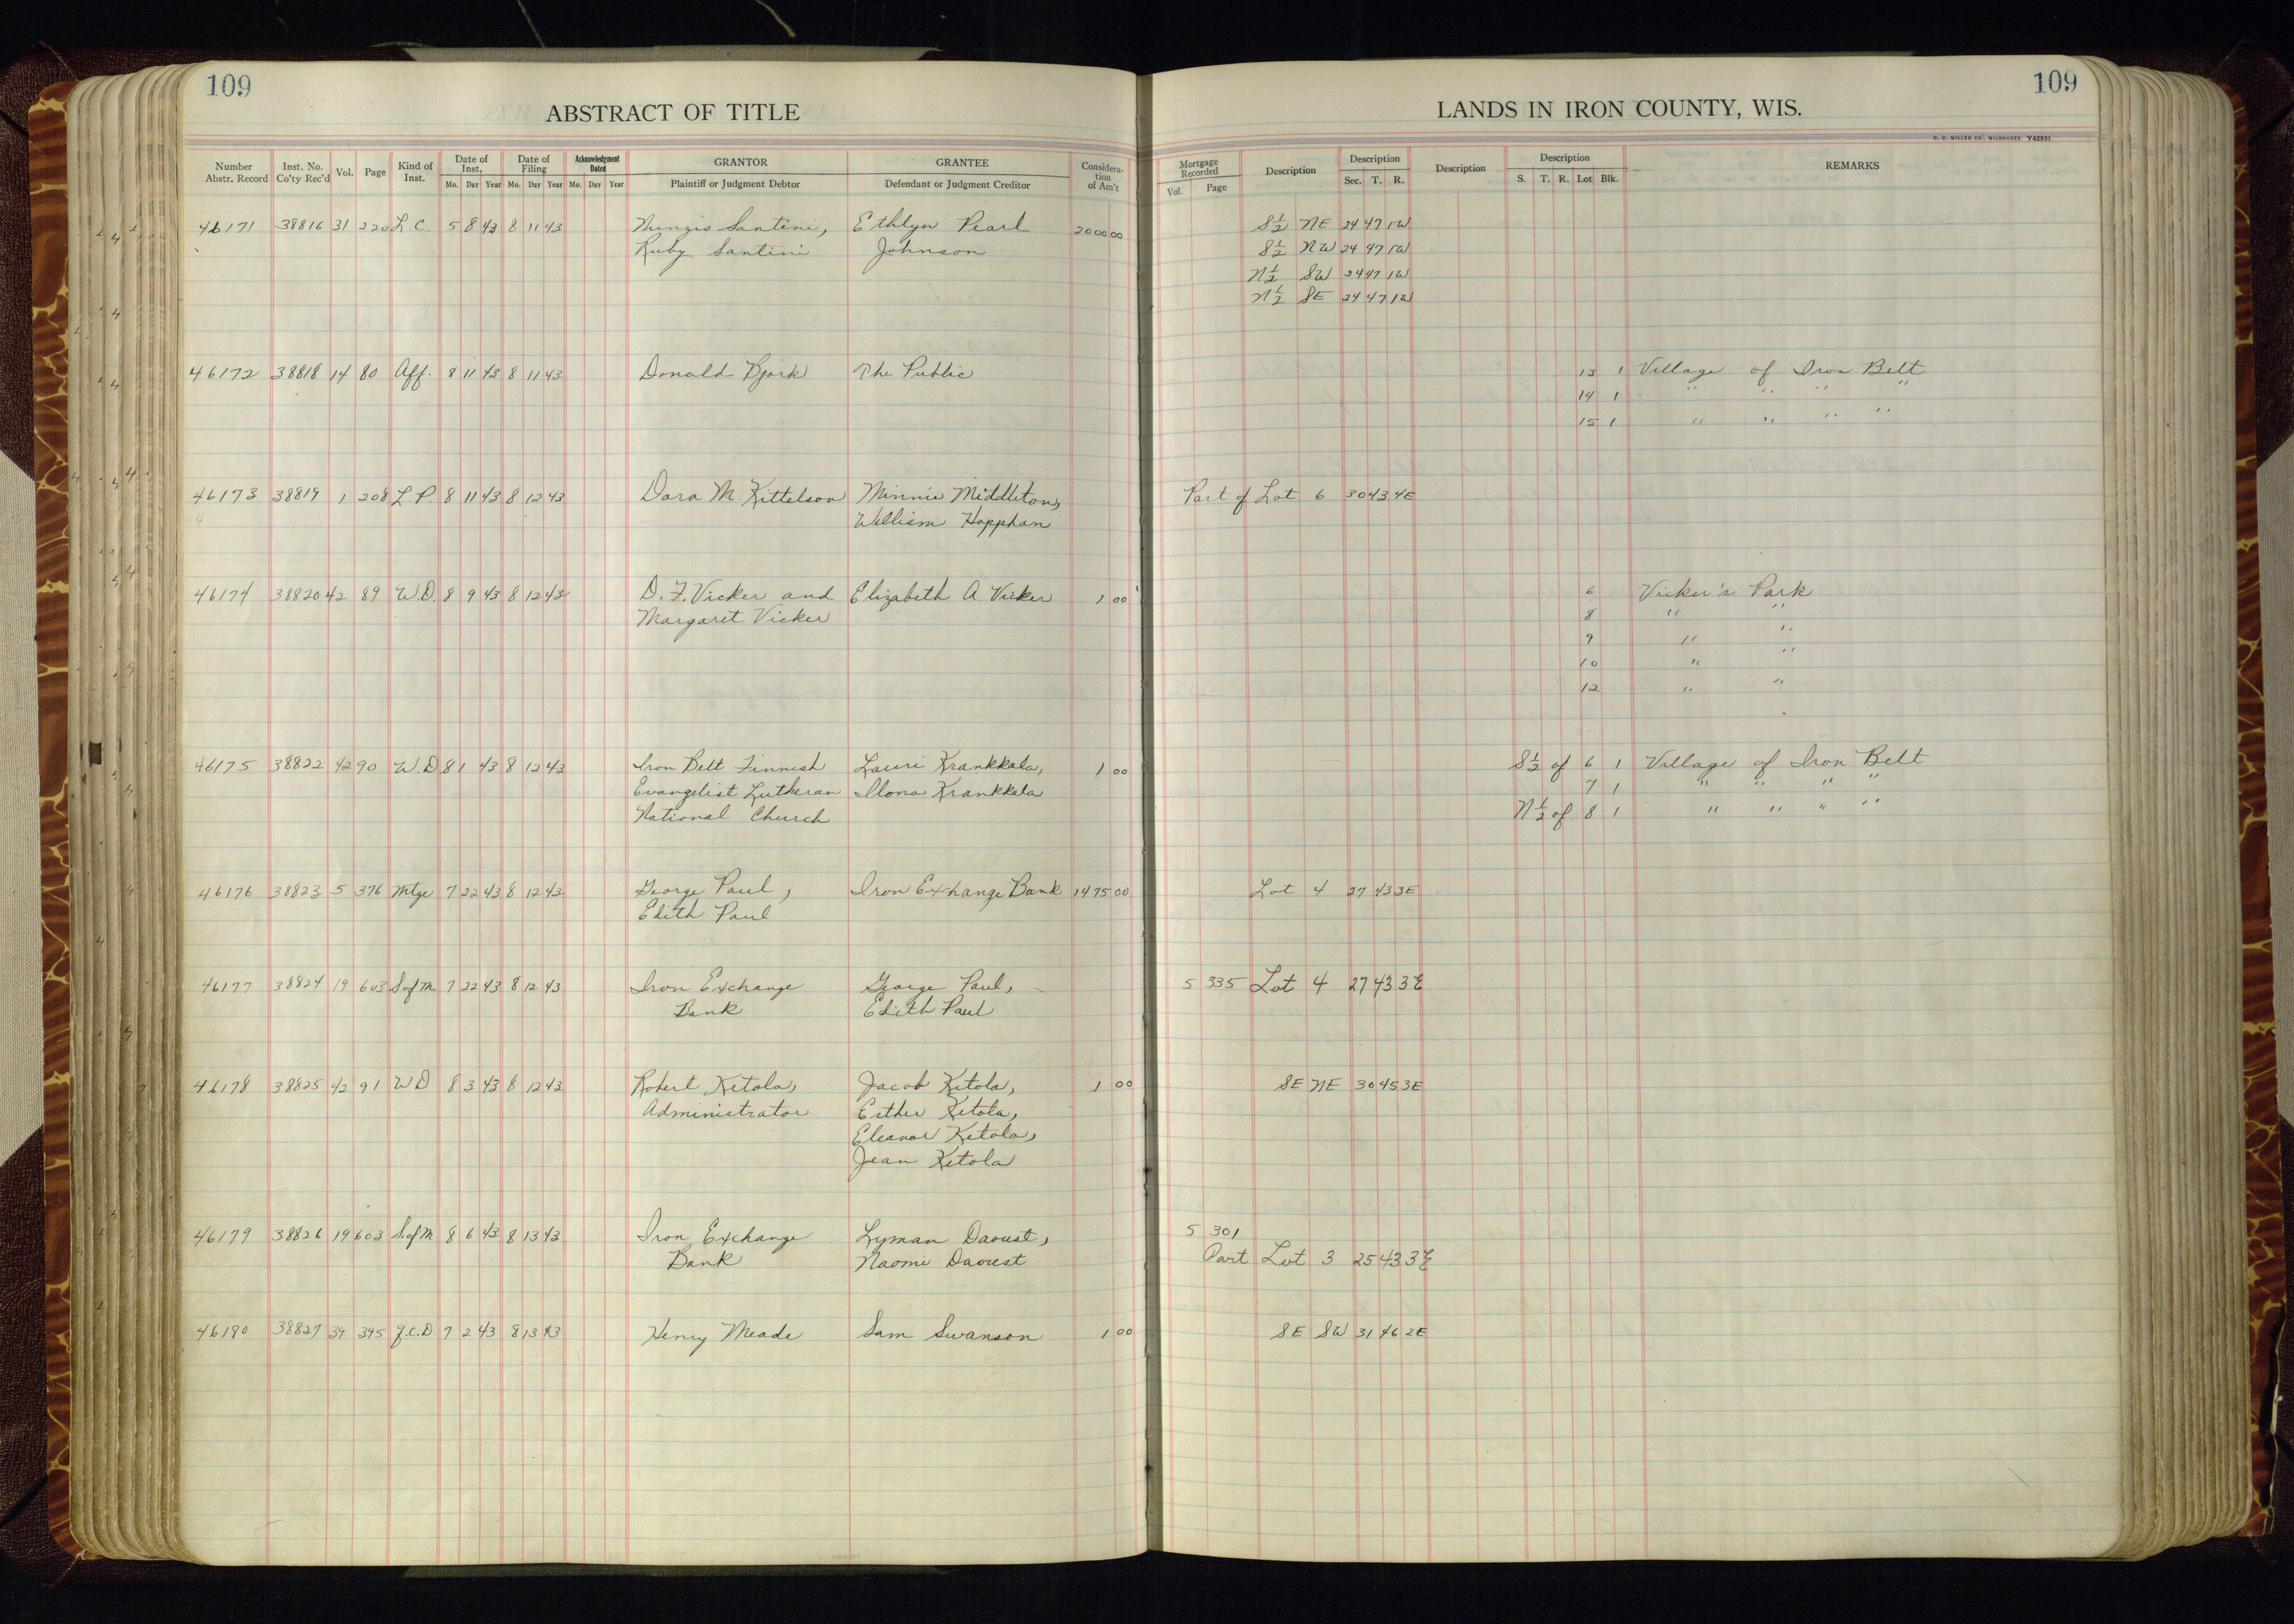 109
109
ABSTRACT OF TITLE
LANDS IN IRON COUNTY, WIS.
H. C. MILLER CO. MILWAUKEE Y42931
Number Abstr. Record Inst. No. Co'ty Rec'd Vol. Page Kind of Inst. Date of Inst. Mo. Day Year Date of Filing Mo. Day Year Acknowledgment Dated Mo. Day Year GRANTOR Plaintiff or Judgment Debtor GRANTEE Defendant or Judgment Creditor Considera-tion of Am't Mortgage Recorded Vol. Page Description Description Sec. T. R. Description Description S. T. R. Lot Blk. REMARKS
46171 38816 31 220 L.C. 5 8 43 8 11 43 Nunzio Santini, Ethlyn Pearl 2000 00 S½ NE 24 47 1W
Ruby Santini Johnson S½ NW 24 47 1W
N½ SW 24 47 1W
N½ SE 24 47 1W
46172 38818 14 80 Aff. 8 11 43 8 11 43 Donald Bjork The Public 13 1 Village of Iron Belt
14 1 " " " "
15 1 " " " "
46173 38819 1 208 L.P. 8 11 43 8 12 43 Dora M. Kittelson Minnie Middleton, Part of Lot 6 30 43 4E
William Hopphan
46174 38820 42 89 W.D. 8 9 43 8 12 43 D. F. Vicker and Elizabeth A Vicker 1 00 6 Vicker's Park
Margaret Vicker 8 " "
9 " "
10 " "
12 " "
46175 38822 42 90 W.D 8 1 43 8 12 43 Iron Belt Finnish Lauri Krankkala, 1 00 S½ of 6 1 Village of Iron Belt
Evangelist Lutheran Ilona Krankkala 7 1 " " " "
National Church N½ of 8 1 " " " "
46176 38823 5 376 Mtge 7 22 43 8 12 43 George Paul, Iron Exchange Bank 1475 00 Lot 4 27 43 3E
Edith Paul
46177 38824 19 603 S.ofM. 7 22 43 8 12 43 Iron Exchange George Paul, 5 335 Lot 4 27 43 3E
Bank Edith Paul
46178 38825 42 91 W D. 8 3 43 8 12 43 Robert Ketola, Jacob Ketola, 1 00 SE NE 30 45 3E
Administrator Esther Ketola,
Eleanor Ketola,
Jean Ketola
46179 38826 19 603 S.ofM 8 6 43 8 13 43 Iron Exchange Lyman Daoust, 5 301
Bank Naomi Daoust Part Lot 3 25 43 3E
46180 38827 39 395 Q.C.D 7 2 43 8 13 43 Henry Meade Sam Swanson 1 00 SE SW 31 46 2E